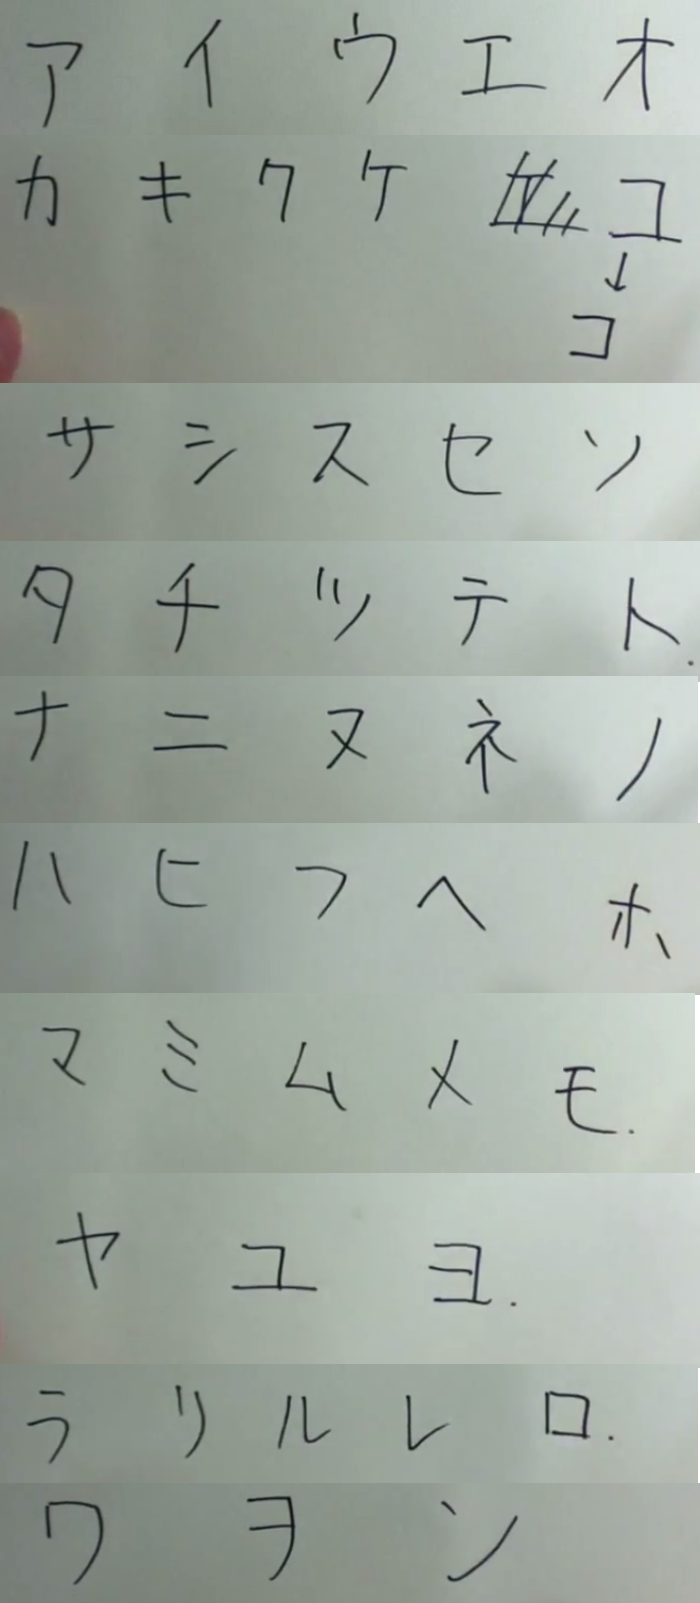 ア イ ウ エ オ
カ キ ク ケ コ
↓
コ
サ シ ス セ ソ
タ チ ツ テ ト.
ナ ニ ヌ ネ ノ
ハ ヒ フ ヘ ホ
マ ミ ム メ モ.
ヤ ユ ヨ.
ラ リ ル レ ロ.
ワ ヲ ン